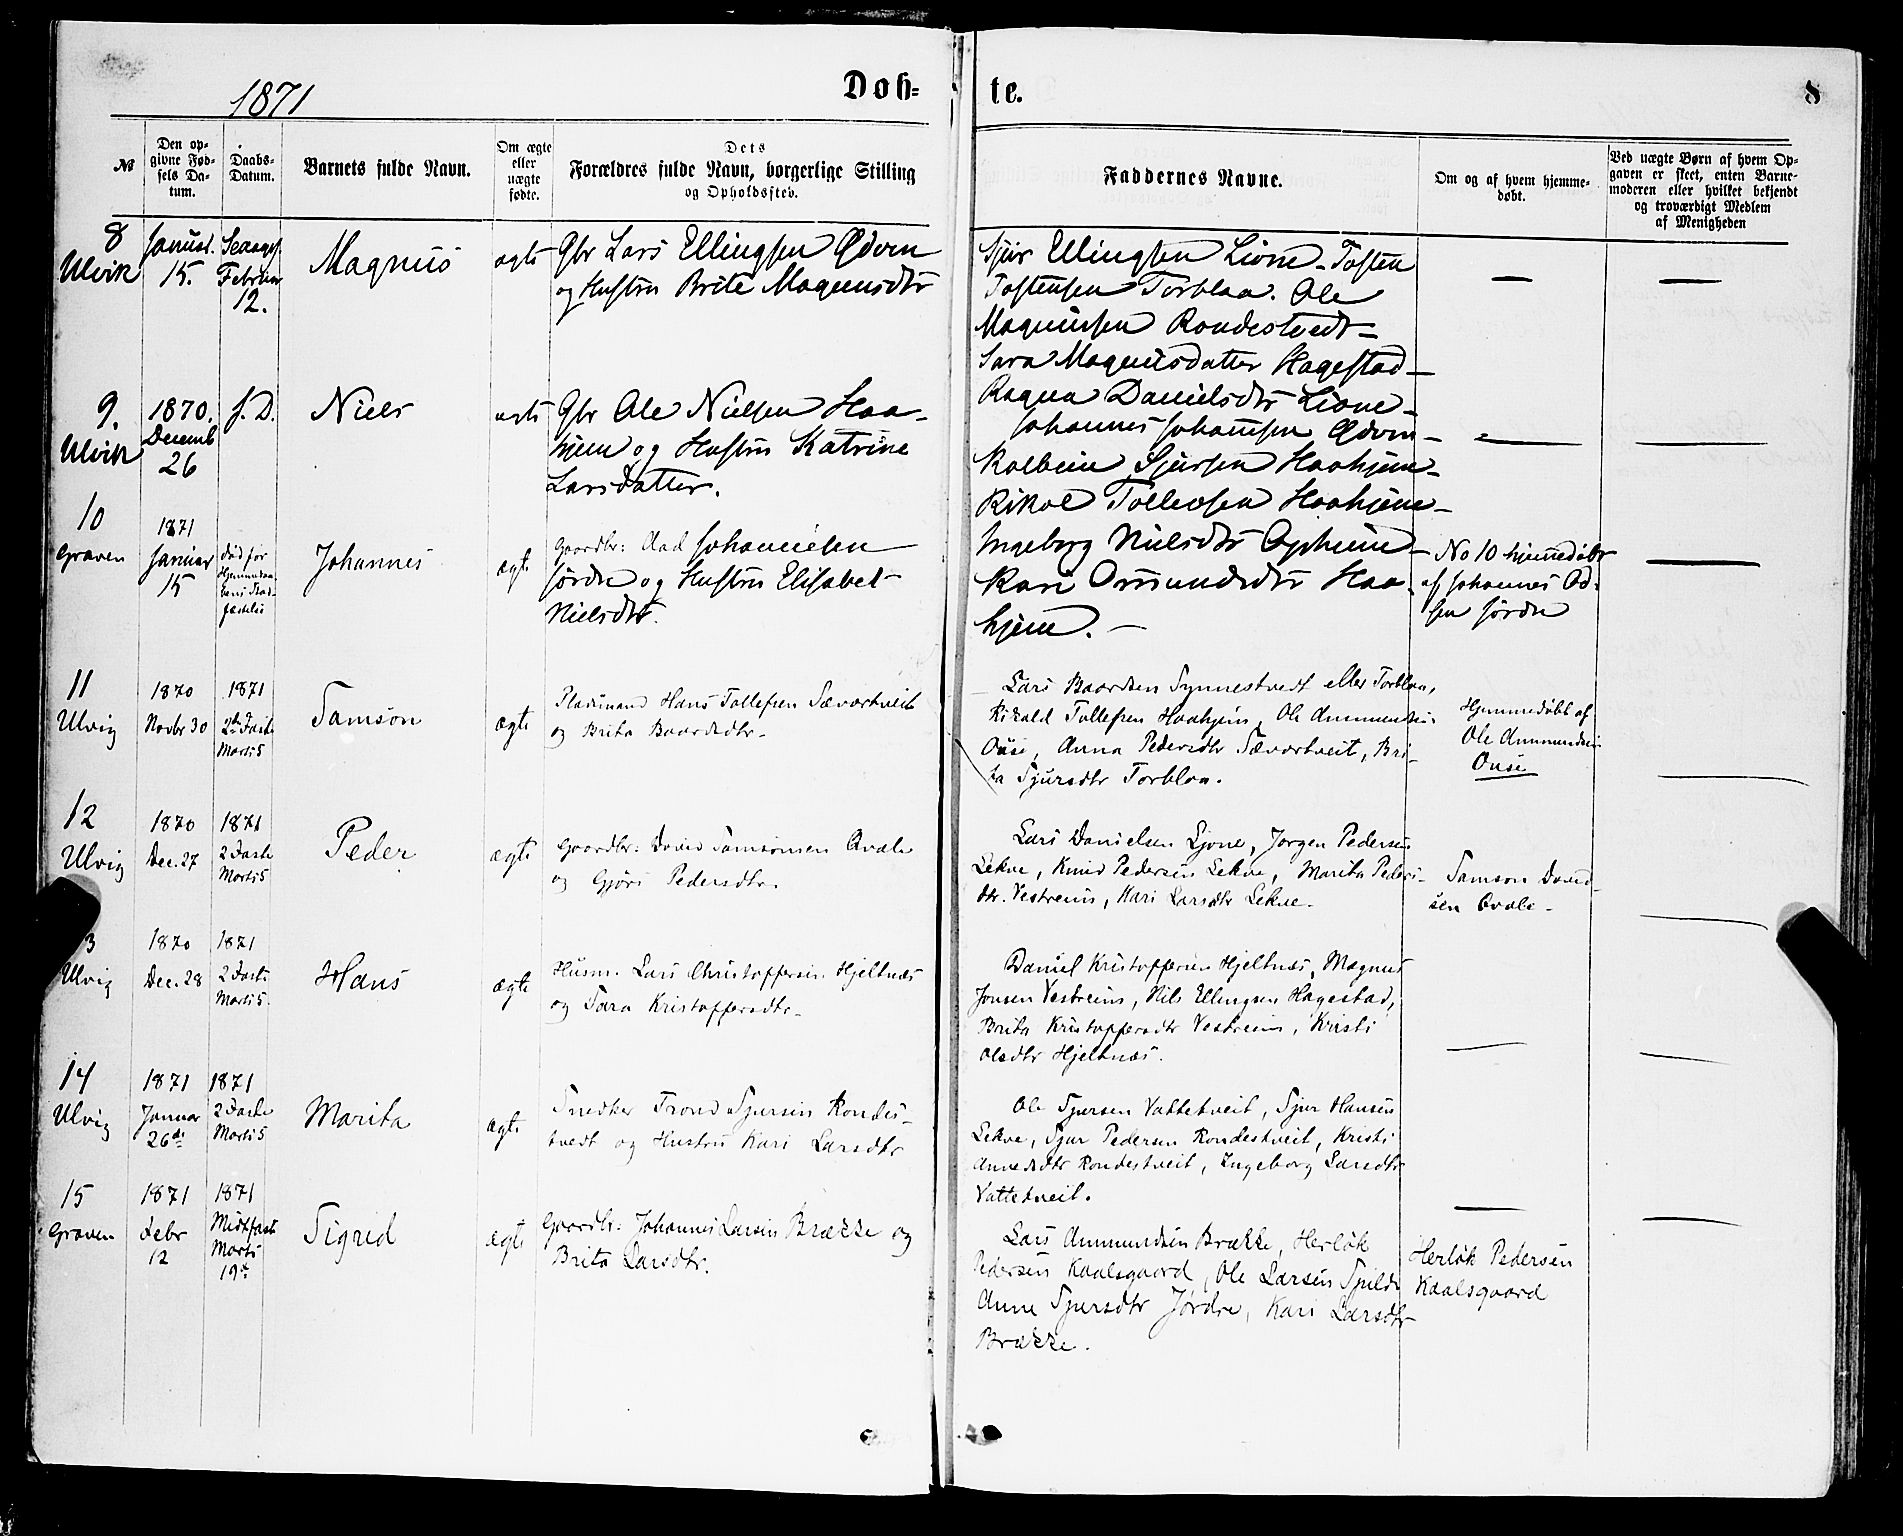 1871
Døb=
te.
8
№
Den op-
givne Fød-
sels Da-
tum.
Daabs-
Datum.
Barnets fulde Navn.
Om ægte
eller
uægte
fødte.
Dets
Forældres fulde Navn, borgerlige Stilling
og Opholdssted.
Faddernes Navne.
Om og af hvem hjemme-
døbt.
Ved uægte Børn af hvem Op-
gaven er skeet, enten Barne-
moderen eller hvilket bekjendt
og troværdigt Medlem
af Menigheden
8
Ulvik
Januar.
15.
Februar
12.
Magnus
ægte
Gbr Lars Ellingsen Ødven
og Hustru Brite Magnusdtr
Sjur Ellingsen Lione - Tosten
Tostensen Torblaa. Ole
Magnussen Rondestvedt -
Sara Magnusdatter Hagestad -
Ragna Danielsdtr Lione -
9.
Ulvik
1870.
Decemb
26
s. D.
Niels
ægte
Gbr Ole Nielsen Haa-
hjem og Hustru Katrine
Larsdatter.
Johannes Johannesen Ødven -
Kolbein Sjursen Haahjem -
Rikol Tollevsen Haahjem -
Ingeborg Nielsdtr Opheim -
Kari Omundsdtr Haa-
hjem. -
10
Graven
1871
Januar
15
død før
Johannes
ægte
Gaardbr: Aad Johannesen
Jørdre og Hustru Elisabet
Nielsdtr.
No 10 hjemmedøbt
af Johannes Od-
sen Jørdre
11
Ulvig
1870
Novbr 30
1871
2den Faste
Marts 5
Samson
ægte
Pladsmand Hans Tollefsen Sævartveit
og Brita Baardsdtr.
Lars Baardsen Synnestvedt eller Torblaa,
Rikold Tollefsen Haahjem, Ole Ammundsen
Ouse, Anna Pedersdtr Sævartveit, Bri-
ta Sjursdtr Torblaa.
Hjemmedøbt af
Ole Ammundsen
Ouse
12
Ulvig
1870
Dec. 27
1871
2 Faste
Marts 5
Peder
ægte
Gaardbr: David Samsonsen Qvale
og Gjøri Pedersdtr.
Lars Danielsen Ljone, Jørgen Pedersen
Lekve, Knud Pedersen Lekve, Marita Peders-
dtr. Vestreim, Kari Larsdtr Lekve.
Samson David-
sen Qvale -
3
Ulvig
1870
Dec. 28
1871
2 Faste
Marts 5.
Hans
ægte
Husm. Lars Christoffersen Hjeltnæs
og Sara Kristoffersdtr.
Daniel Kristoffersen Hjeltnæs, Magnus
Jonsen Vestreim, Nils Ellingsen Hagestad,
Brita Kristoffersdtr Vestreim, Kristi
Olsdtr Hjeltnæs.
14
Ulvig
1871
Januar
26de
1871
2 Faste
Marts 5
Marita
ægte
Snedker Trond Sjursen Rondes-
tvedt og Hustru Kari Larsdtr
Ole Sjursen Vattetveit, Sjur Hansen
Lekve, Sjur Pedersen Rondestveit, Kristi
Rondestveit, Ingeborg Larsdtr
Vattetveit.
15
Graven
1871
Febr
12
1871
Midtfaste
Marts
19de
Sigrid
ægte
Gaardbr: Johannes Larsen Brække og
Brita Larsdtr.
Lars Ammundsen Brække, Herløk
Pedersen Kaalsgaard, Ole Larsen Spilde
Anne Sjursdtr Jørdre, Kari Larsdtr
Brække.
Herløk Pedersen
Kaalsgaard